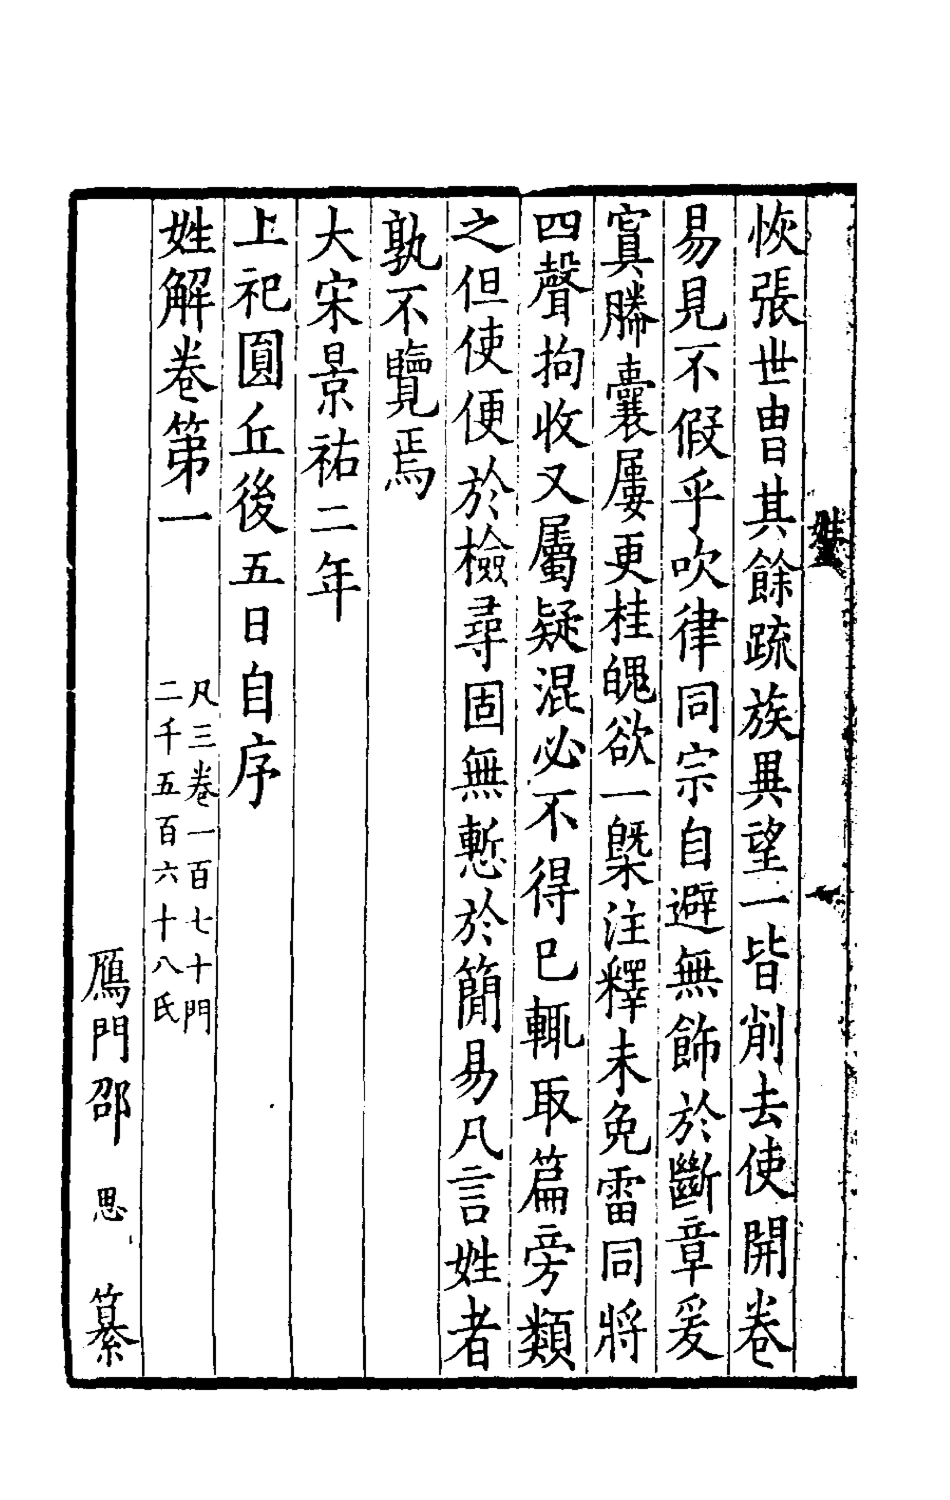 恢張世胄其餘疏族異望一皆削去使開卷
易見不假乎吹律同宗自避無飾於斷章爰
寘縢囊屢更桂魄欲一槩注釋未免雷同將
四聲拘收又屬疑混必不得已輒取篇旁類
之但使便於檢尋固無慙於簡易凡言姓者
孰不覽焉
大宋景祐二年
上祀圓丘後五日自序
姓解卷第一
凡三卷一百七十門
二千五百六十八氏
鴈門邵 思 纂